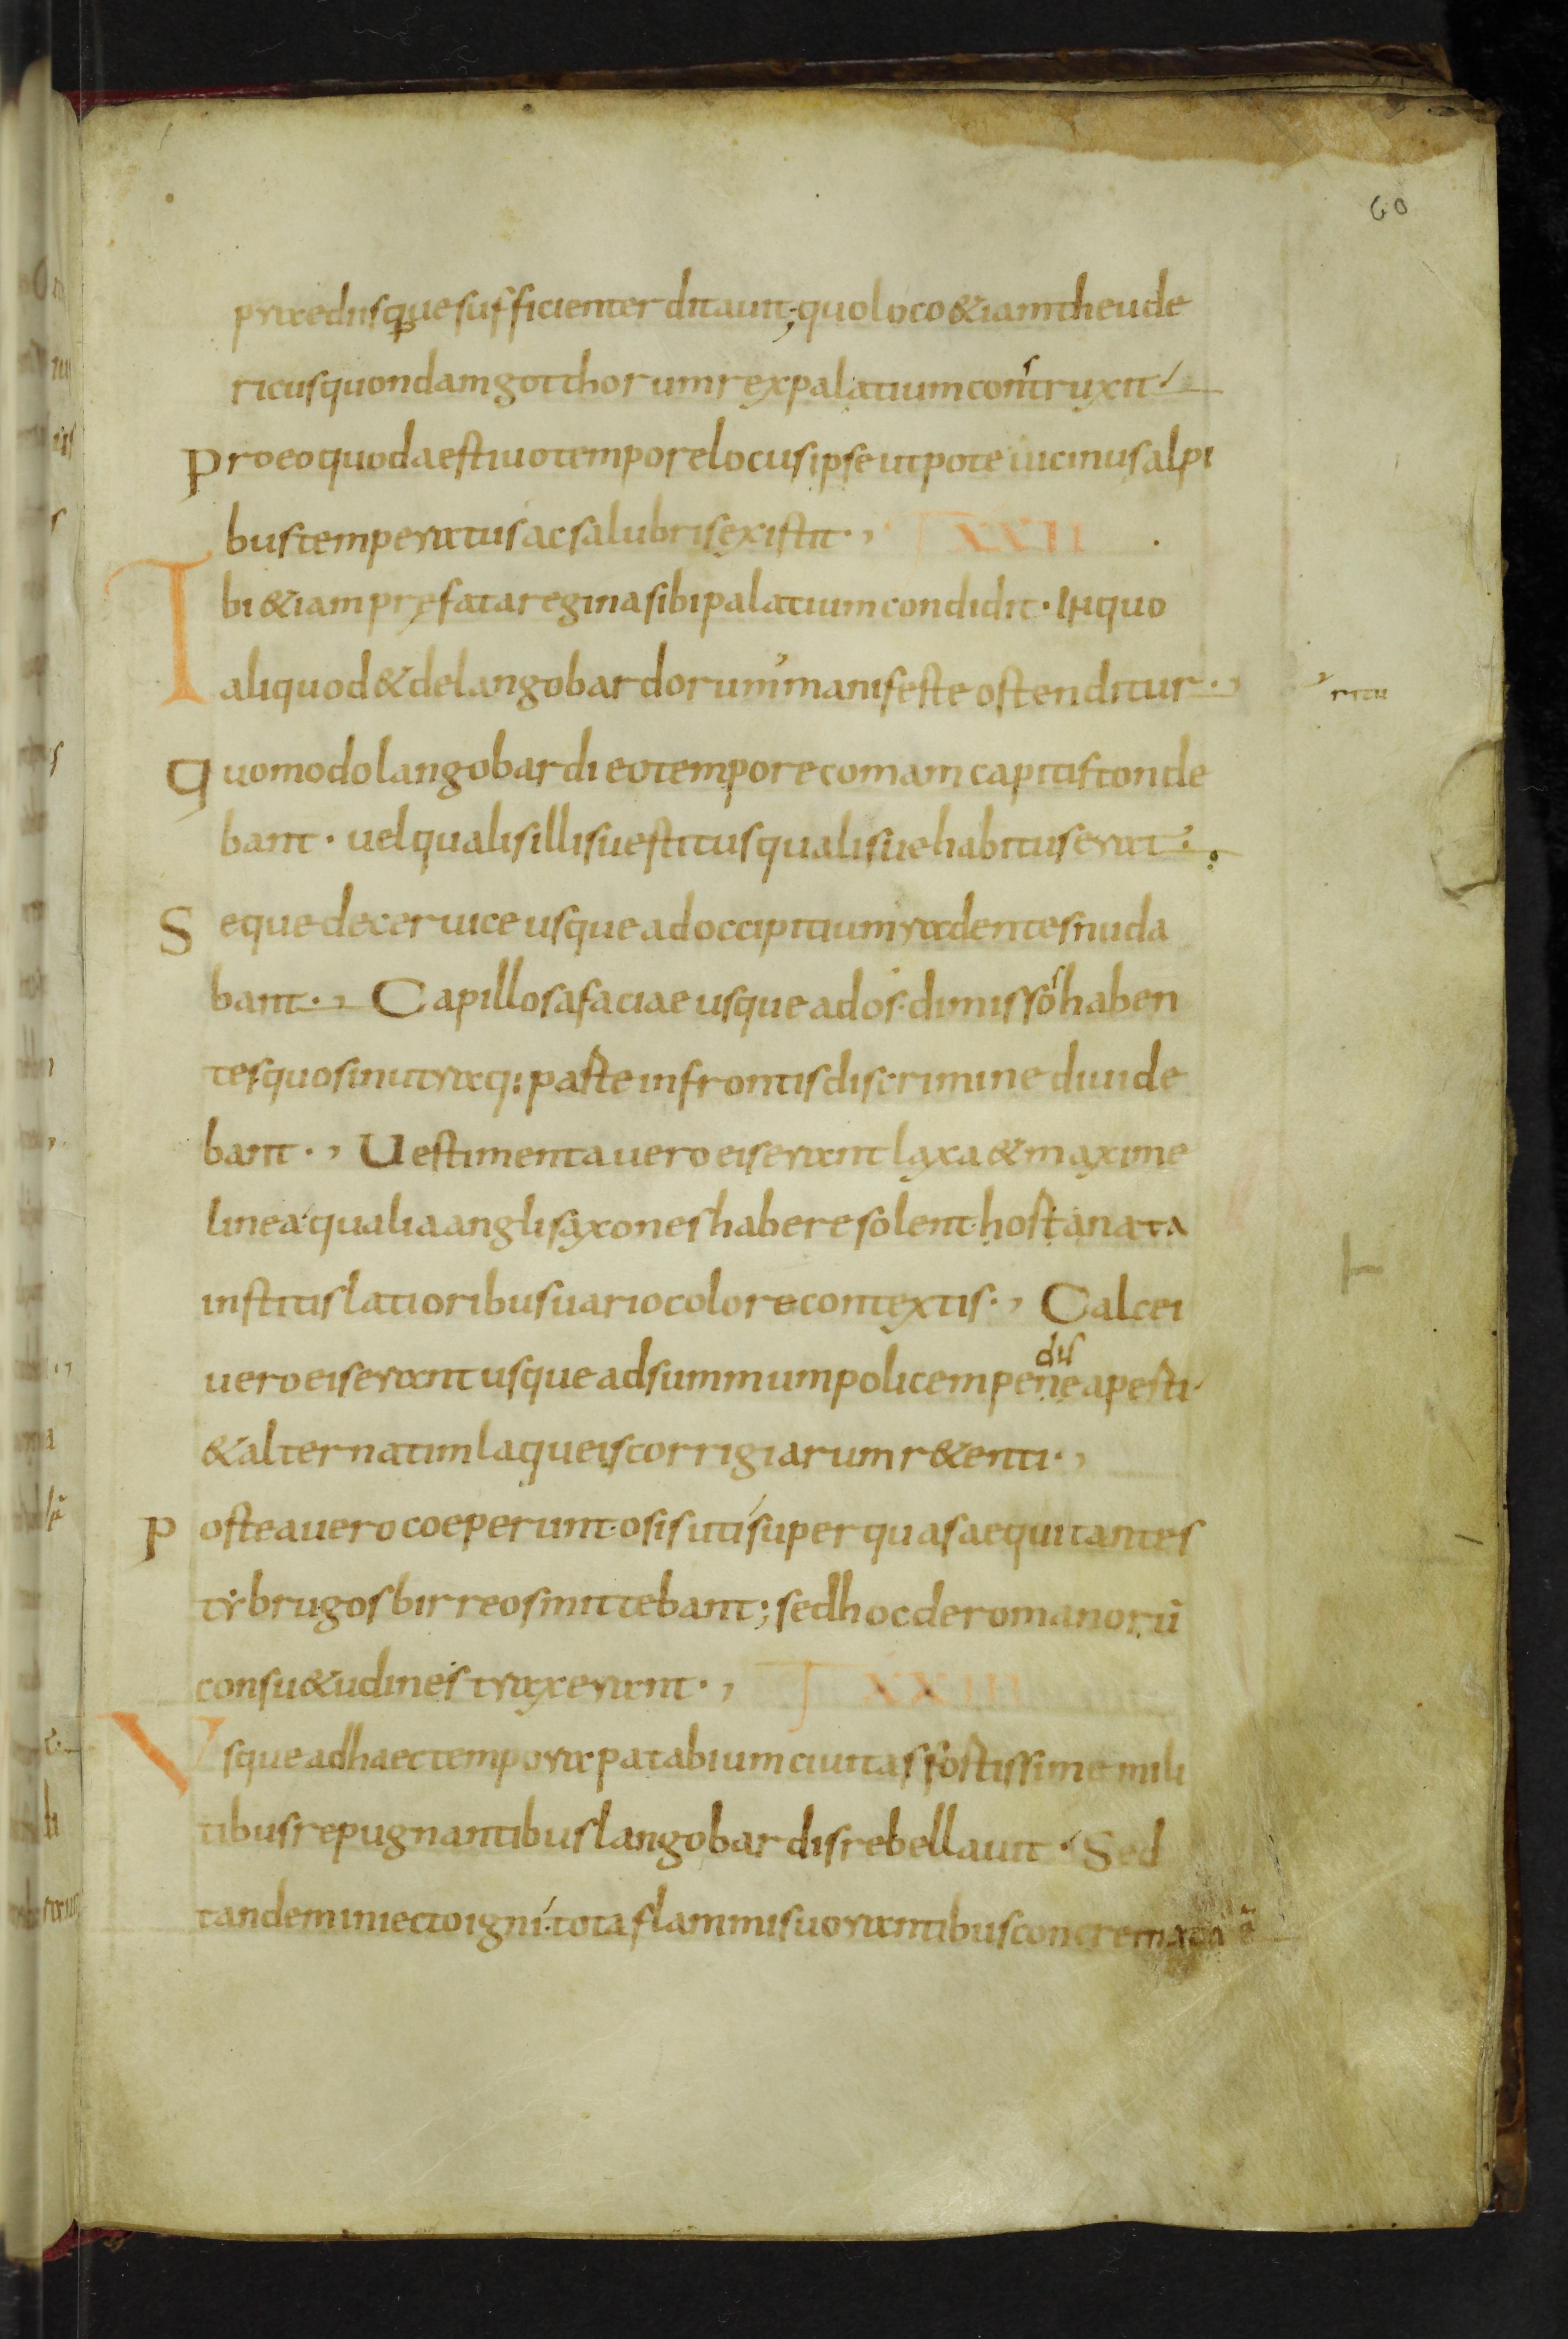 60
praediisque sufficienter ditauit; quo loco &iam theude
ricus quondam gotthorum rex palatium construxit
Pro eo quod aestiuo tempore locus ipse utpote uicinus alpi
bus temperatus ac salubris existit·, XXII
Ibi &iam pręfata regina sibi palatium condidit· In quo
aliquod & de langobardorum manifeste ostenditur·,
ritu
Quomodo langobardi eo tempore comam capitis tonde
bant· uel qualis illis uestitus qualisue habitus erat·,
Seque de ceruice usque ad occipitium radentes nuda
bant·, Capillos a faciae usque ad os· dimissos haben
tes quos in utraq; paste in frontis discrimine diuide
bant·, Uestimenta uero eis erant laxa & maxime
linea· qualia angli saxones habere solent· hostanata
institis latioribus uario colore contextis·, Calcei
uero eis erant usque ad summum policem pene apesti·
dis
& alternatim laqueis corrigiarum r&enti·,
Postea uero coeperunt· osis uti super quas aequitantes
tẏbrugos birreos mittebant; sed hoc de romanorū
consu&udines traxerant·, XXIII
Vsque ad haec tempora patabium ciuitas fostissime mili
tibus repugnantibus langobardis rebellauit· Sed
tandem iniecto igni· tota flammis uorantibus concremata ē